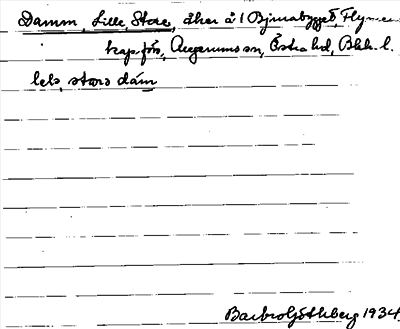 Damm, Lille, Stora, åker å 1 Björnabygget, Flymen
kap.förs, Augerums sn, Östra hd, Blek. l.
lela, stora dám
Barbro Götlberg 1934.